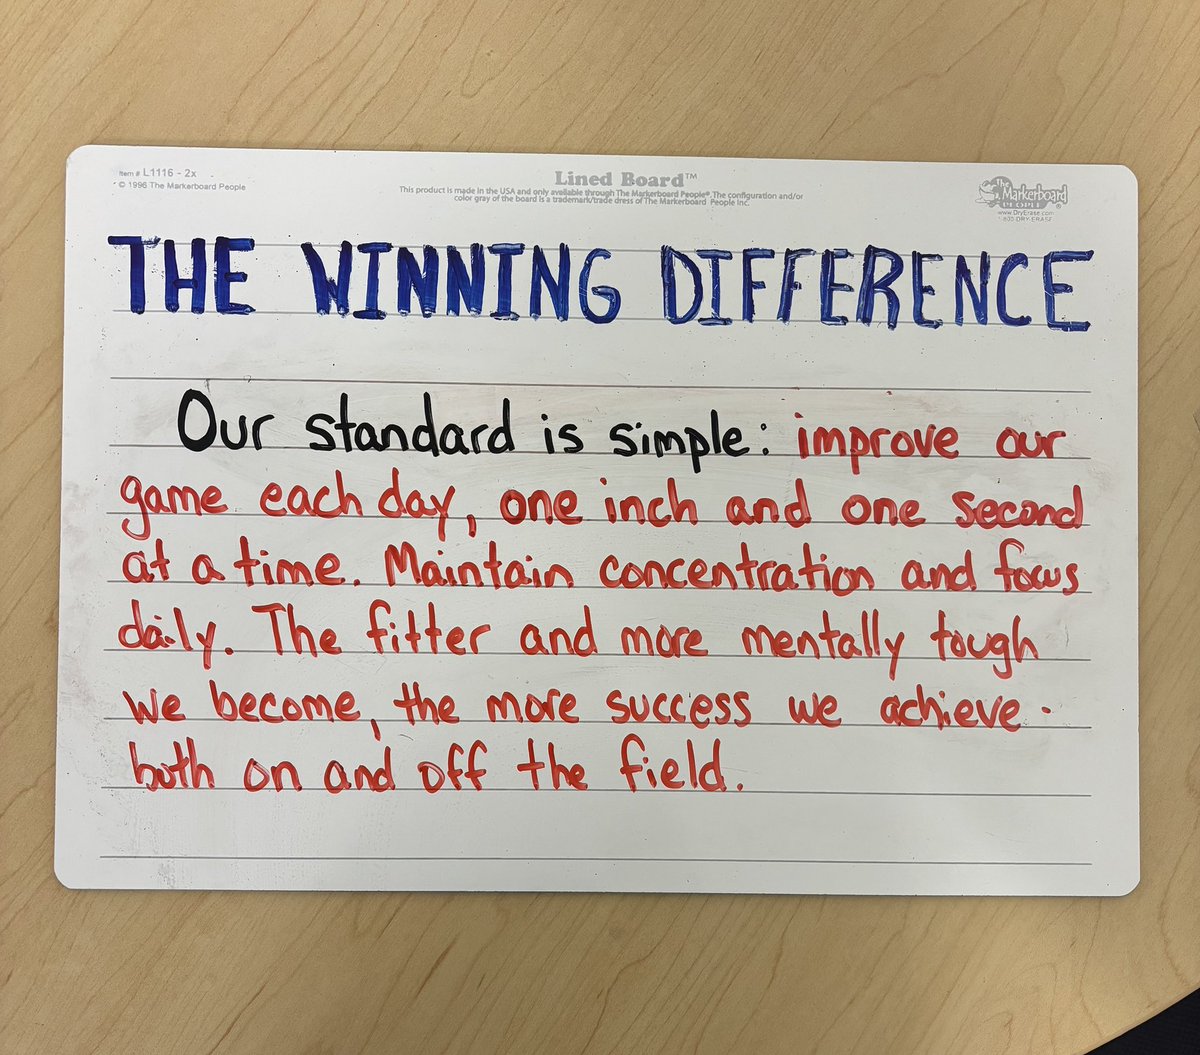 Item # L1116 - 2x
© 1996 The Markerboard People
Lined Board™
This product is made in the USA and only available through The Markerboard People®. The configuration and/or
color gray of the board is a trademark/trade dress of The Markerboard People Inc.
The
Markerboard
PEOPLE®
www.DryErase.com
1 800 DRY-ERASE
THE WINNING DIFFERENCE
Our standard is simple: improve our
game each day, one inch and one second
at a time. Maintain concentration and focus
daily. The fitter and more mentally tough
we become, the more success we achieve -
both on and off the field.